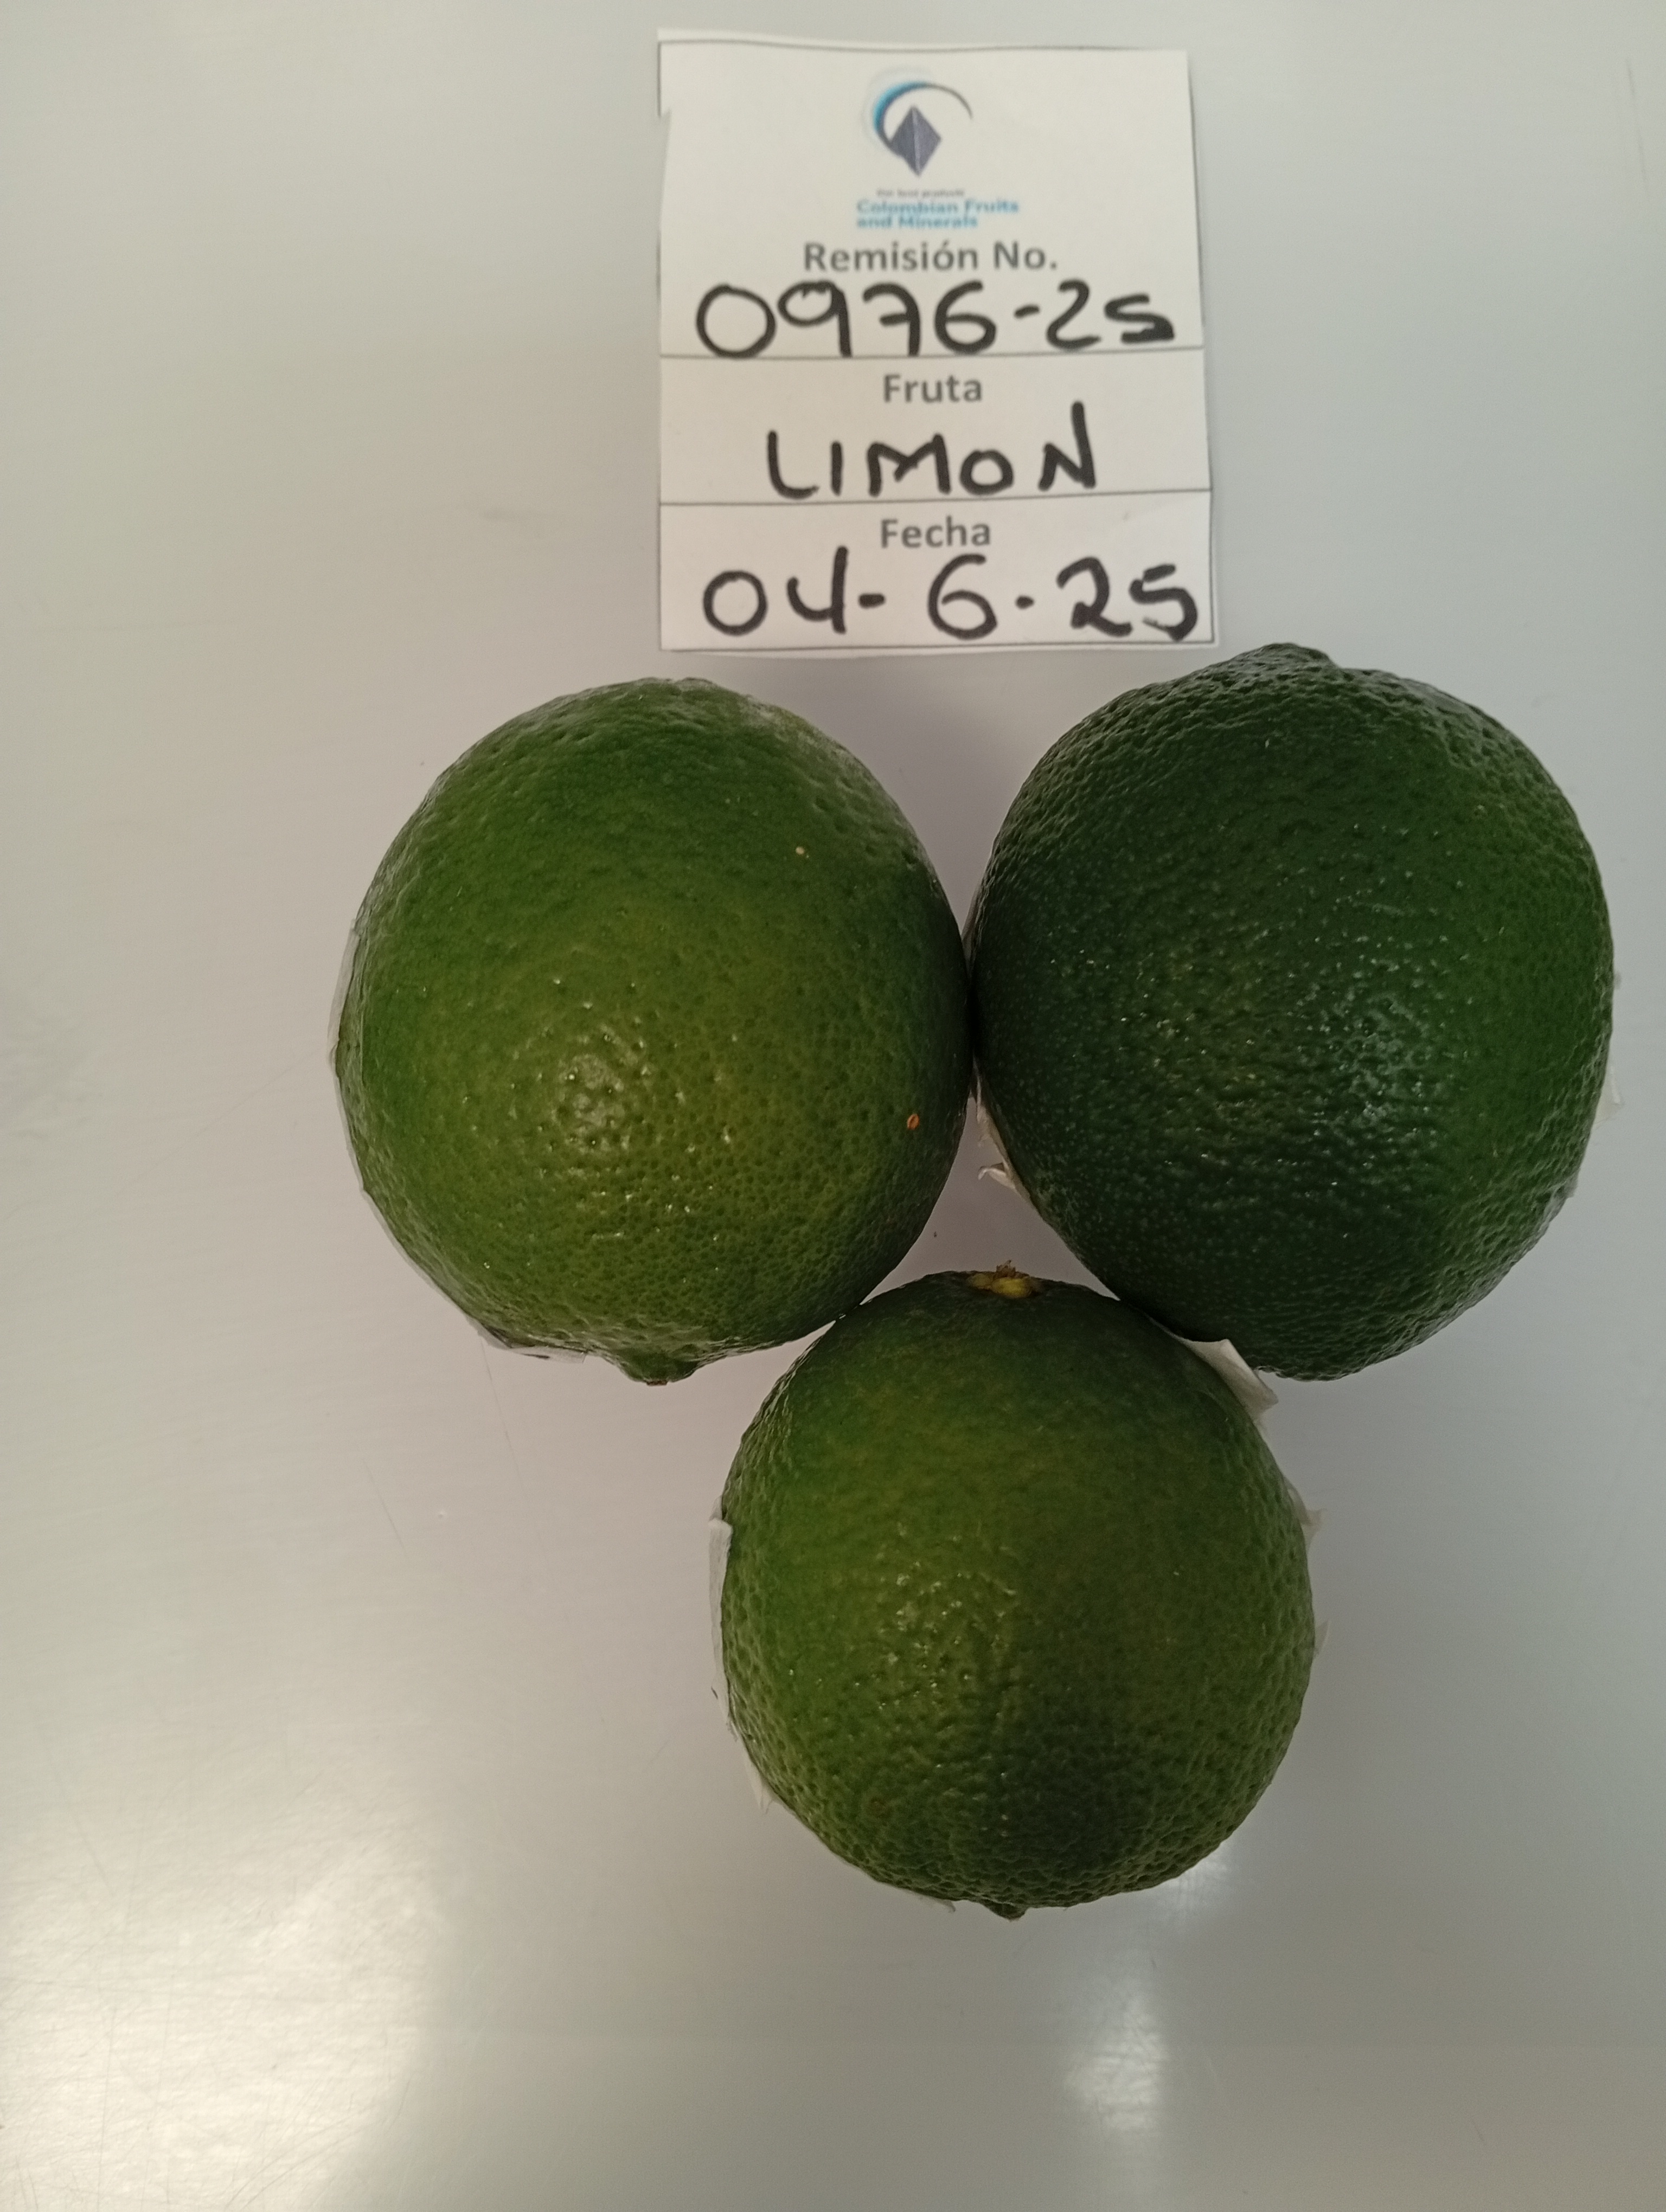 For best products
Colombian Fruits
and Minerals
Remisión No.
0976-25
Fruta
LIMON
Fecha
04-6-25